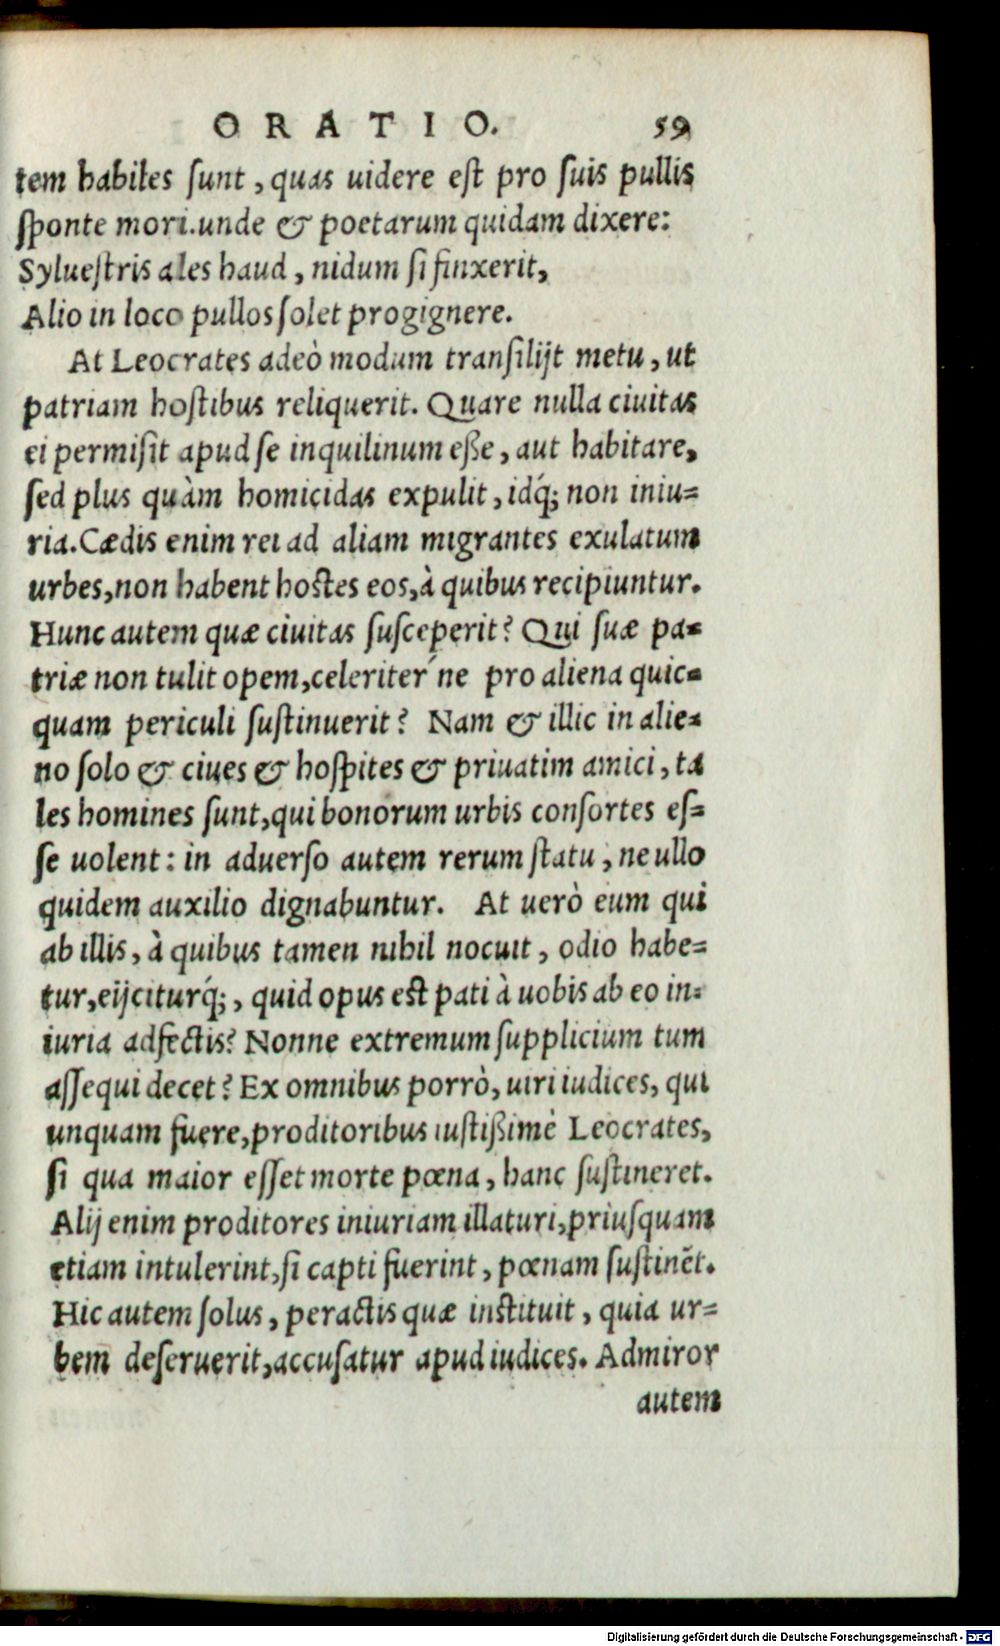 ORATIO. 59
tem habiles ſunt, quas uidere eſt pro ſuis pullis
ſponte mori. unde & poetarum quidam dixere:
Sylueſtris ales haud, nidum ſi finxerit,
Alio in loco pullos ſolet progignere.
At Leocrates adeò modum tranſilijt metu, ut
patriam hoſtibus reliquerit. Quare nulla ciuitas
ei permiſit apud ſe inquilinum eße, aut habitare,
ſed plus quàm homicidas expulit, idq́; non iniu=
ria. Cædis enim rei ad aliam migrantes exulatum
urbes, non habent hoſtes eos, à quibus recipiuntur.
Hunc autem quæ ciuitas ſuſceperit? Qui ſuæ pa=
triæ non tulit opem, celeriter ́ne pro aliena quic=
quam periculi ſuſtinuerit? Nam & illic in alie=
no ſolo & ciues & hoſpites & priuatim amici, ta
les homines ſunt, qui bonorum urbis conſortes eſ=
ſe uolent: in aduerſo autem rerum ſtatu, ne ullo
quidem auxilio dignabuntur. At uerò eum qui
ab illis, à quibus tamen nihil nocuit, odio habe=
tur, eijciturq́;, quid opus eſt pati à uobis ab eo in=
iuria adfectis? Nonne extremum ſupplicium tum
aſſequi decet? Ex omnibus porrò, uiri iudices, qui
unquam fuere, proditoribus iuſtißimè Leocrates,
ſi qua maior eſſet morte pœna, hanc ſuſtineret.
Alij enim proditores iniuriam illaturi, priuſquam
etiam intulerint, ſi capti fuerint, pœnam ſuſtinēt.
Hic autem ſolus, peractis quæ inſtituit, quia ur=
bem deſeruerit, accuſatur apud iudices. Admiror
autem
Digitalisierung gefördert durch die Deutsche Forschungsgemeinschaft - DFG